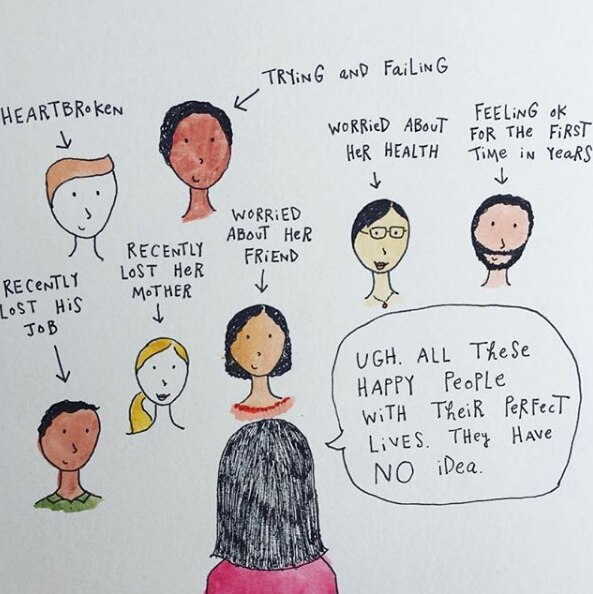 TRYING AND FAILING
HEARTBROKEN
WORRIED ABOUT
HER HEALTH
FEELING OK
FOR THE FIRST
TIME IN YEARS
WORRIED
ABOUT HER
FRIEND
RECENTLY
LOST HER
MOTHER
RECENTLY
LOST HIS
JOB
UGH. ALL THESE
HAPPY PEOPLE
WITH THEIR PERFECT
LIVES. THEY HAVE
NO IDEA.